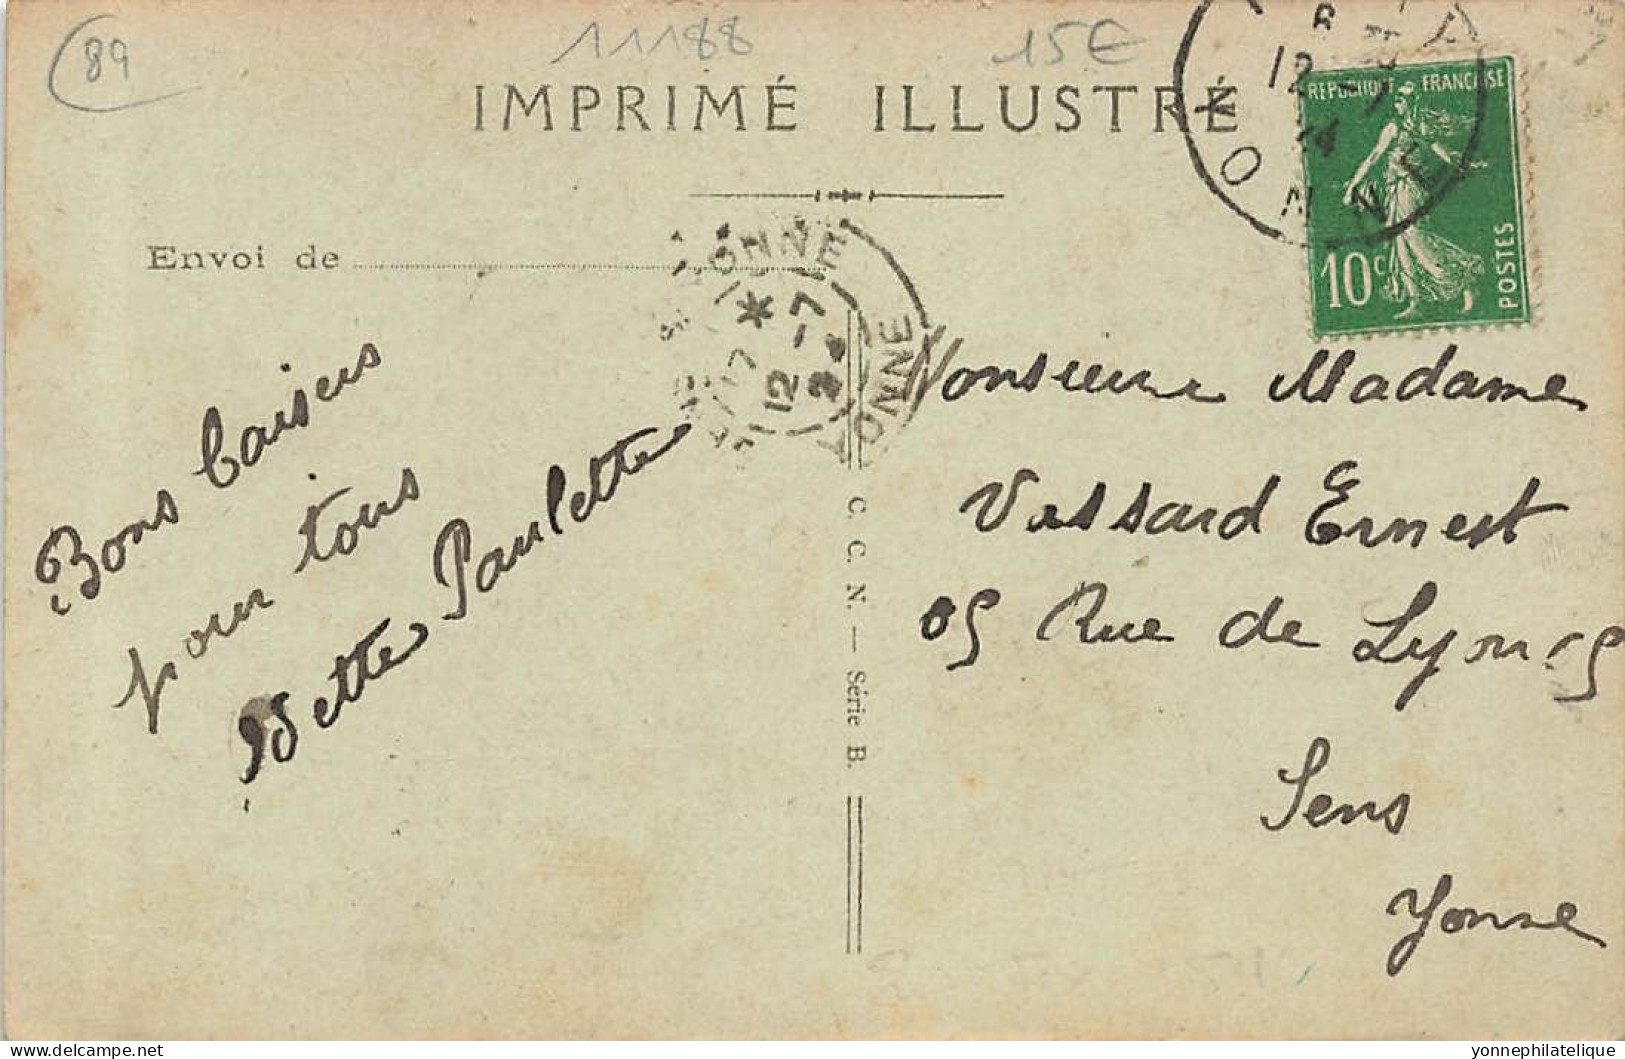 89
11188
15€
IMPRIMÉ ILLUSTRÉ
RÉPUBLIQUE FRANÇAISE
10c
POSTES
12
YONNE
Envoi de
YONNE
17 * 12 -7 24
YONNE
Bons baisers
pour tous
Paulette
C. C. N. — Série B.
Monsieur Madame
Vassard Ernest
Rue de Lyon
Sens
Yonne
delcampe.net
yonnephilatelique